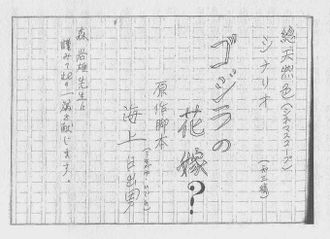 総天然色(シネマスコープ)
シナリオ
(第三稿)
ゴジラの
花嫁?
原作脚本
海上日出男
森岩雄先生に
謹みて此の一篇を献じます。